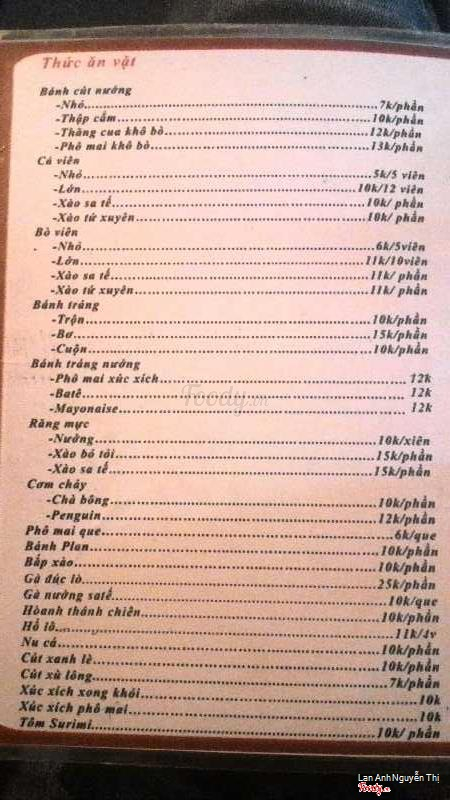 Thức ăn vặt
Bánh cút nướng
-Nhỏ...7k/phần
-Thập cẩm...10k/phần
-Thăng cua khô bò...12k/phần
-Phô mai khô bò...13k/phần
Cá viên
-Nhỏ...5k/5 viên
-Lớn...10k/12 viên
-Xào sa tế...10k/ phần
-Xào tứ xuyên...10k/ phần
Bò viên
-Nhỏ...6k/5viên
-Lớn...11k/10viên
-Xào sa tế...11k/ phần
-Xào tứ xuyên...11k/ phần
Bánh tráng
-Trộn...10k/phần
-Bơ...15k/phần
-Cuộn...10k/phần
Bánh tráng nướng
-Phô mai xúc xích...12k
-Batê...12k
-Mayonaise...12k
Răng mực
-Nướng...10k/xiên
-Xào bó tỏi...15k/phần
-Xào sa tế...15k/phần
Cơm cháy
-Chà bông...10k/phần
-Penguin...12k/phần
Phô mai que...6k/que
Bánh Plan...10k/phần
Bắp xào...10k/phần
Gà đúc lò...25k/phần
Gà nướng satế...10k/que
Hòanh thánh chiên...10k/phần
Hồ lô...11k/4v
Nu cá...10k/phần
Cút xanh lè...10k/phần
Cút xù lông...7k/phần
Xúc xích xong khói...10k
Xúc xích phô mai...10k
Tôm Surimi...10k/ phần
Foody.vn
Lan AnhNguyễn Thị
Foody.vn